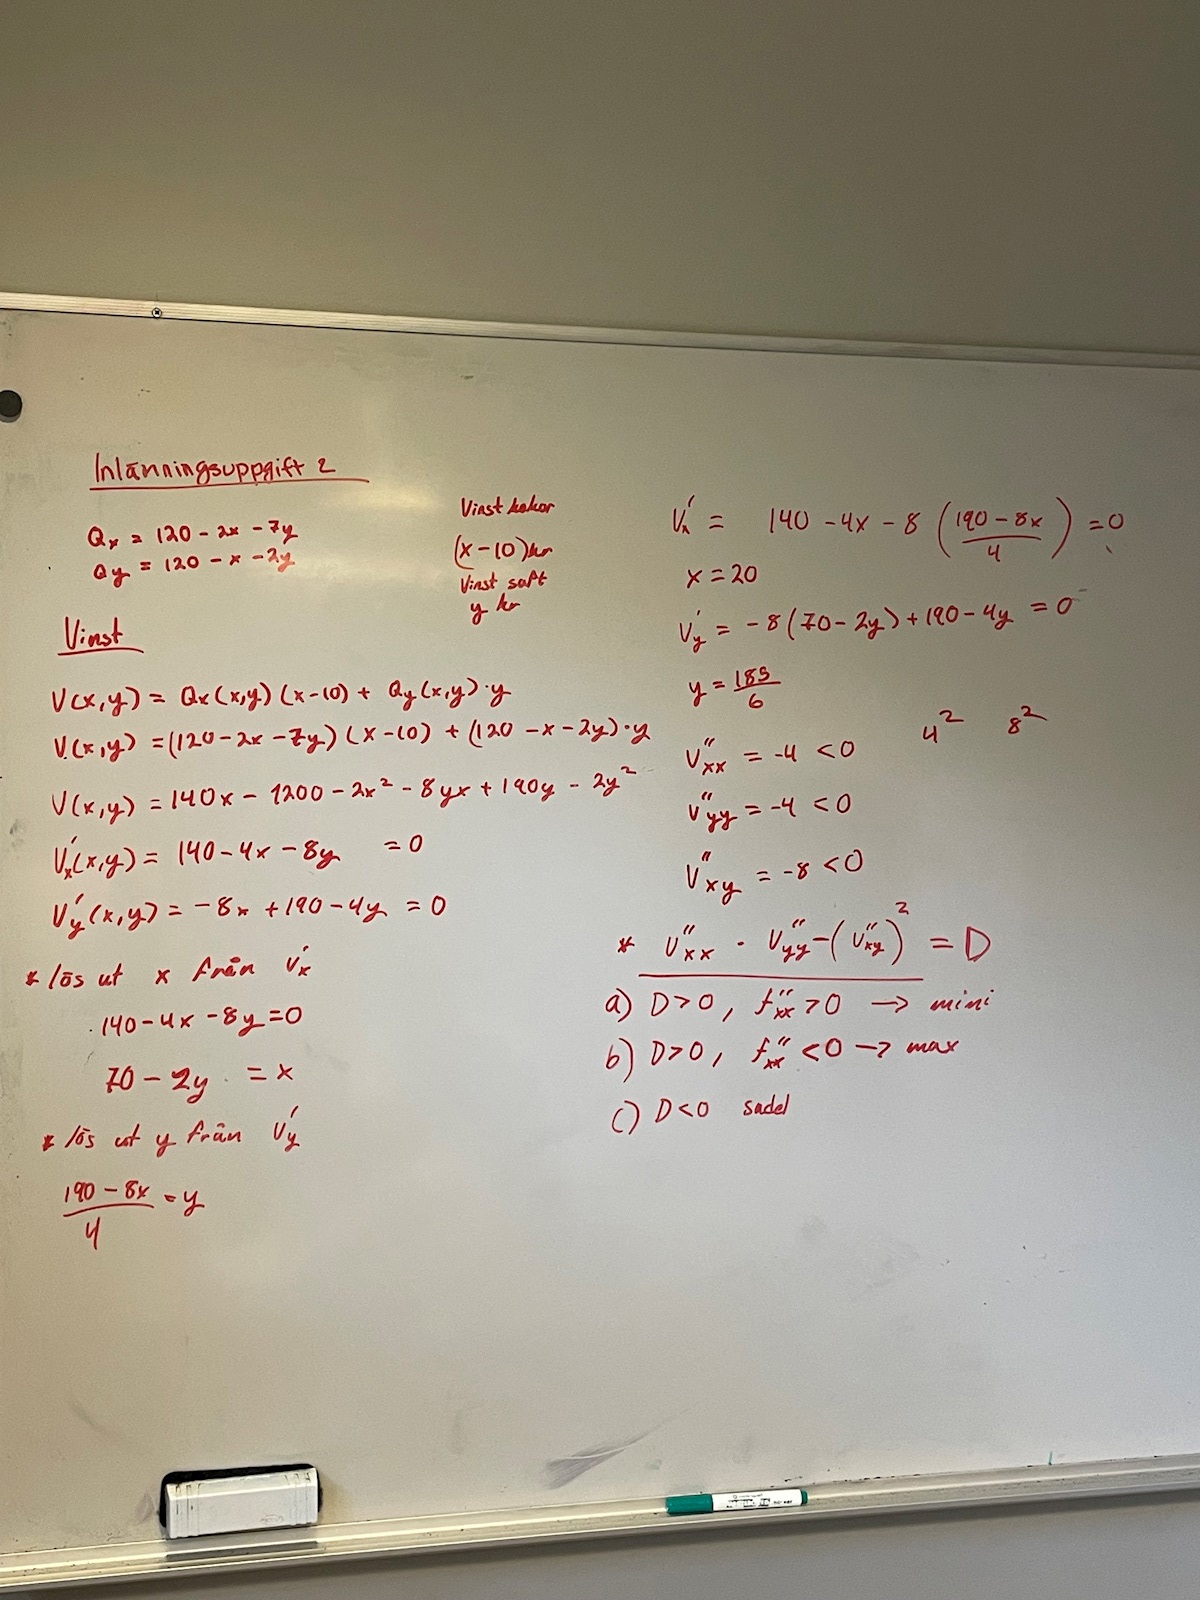 Inlänningsuppgift 2
Qx = 120 - 2x - 7y
Qy = 120 - x - 2y
Vinst kakor
(x-10)kr
Vinst saft
y kr
Vinst
V(x,y) = Qx(x,y)(x-10) + Qy(x,y)·y
V(x,y) = (120-2x-7y)(x-10) + (120-x-2y)·y
V(x,y) = 140x - 1200 - 2x² - 8yx + 190y - 2y²
V'x(x,y) = 140-4x-8y = 0
V'y(x,y) = -8x + 190-4y = 0
* lös ut x från V'x
140-4x-8y=0
70-2y = x
* lös ut y från V'y
(190-8x)/4 = y
V'x = 140-4x-8((190-8x)/4) = 0
x = 20
V'y = -8(70-2y) + 190-4y = 0
y = 185/6
4² 8²
V''xx = -4 < 0
V''yy = -4 < 0
V''xy = -8 < 0
* V''xx · V''yy - (V''xy)² = D
a) D>0, f''xx >0 → mini
b) D>0, f''xx <0 → max
c) D<0 sadel